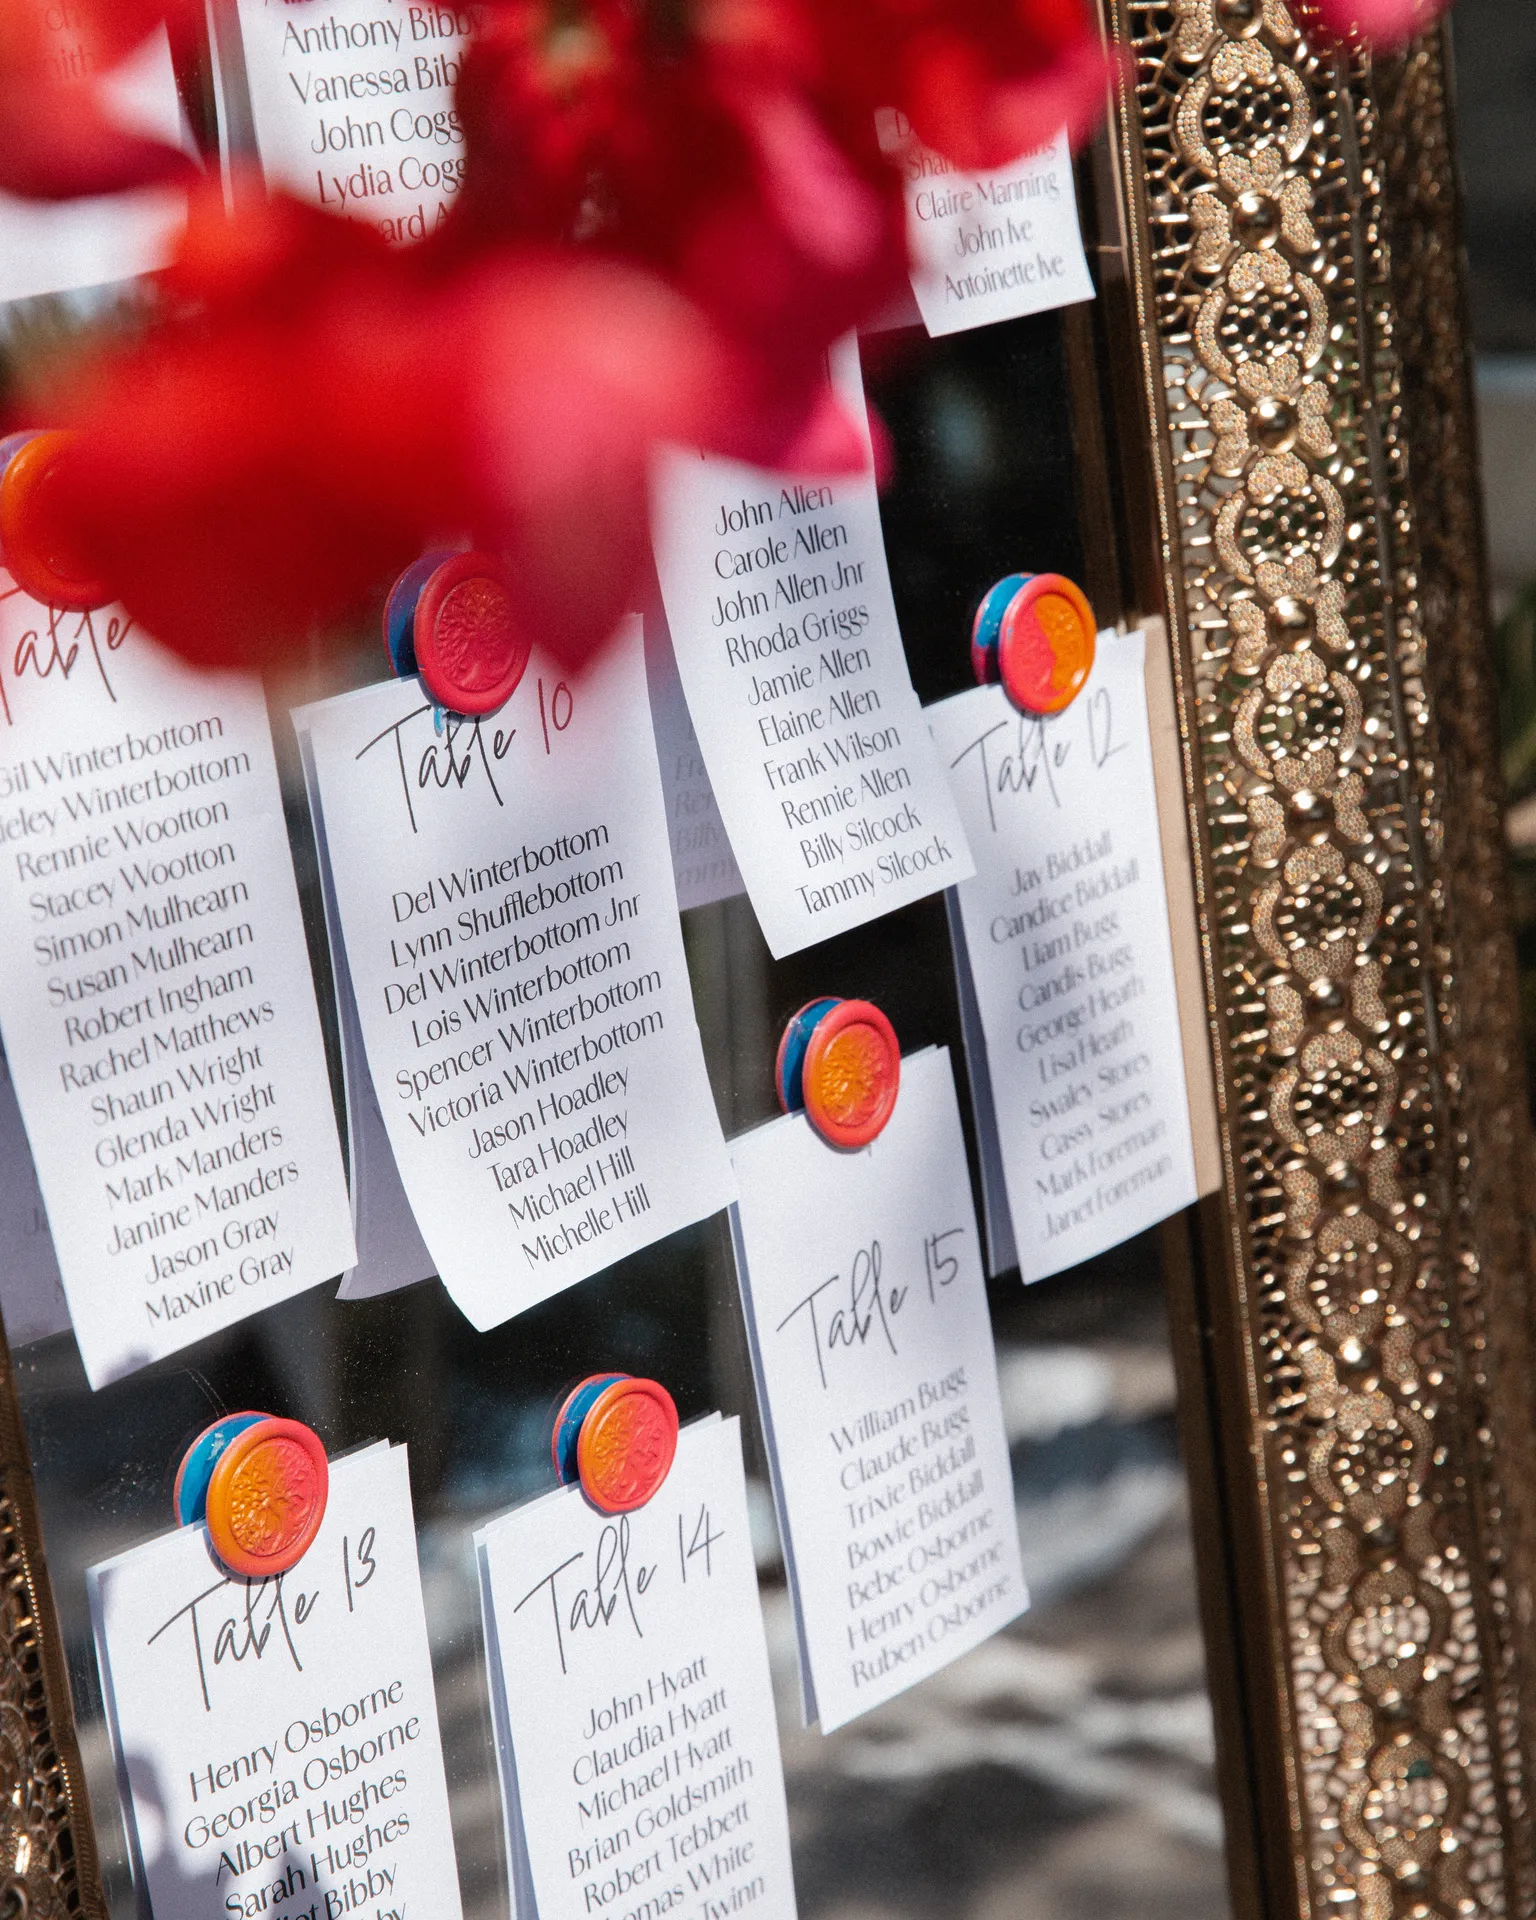 Anthony Bibby
Vanessa Bibb
John Cogg
Lydia Cogg
Claire Manning
John Ive
Antoinette Ive
Table
Gil Winterbottom
Winterbottom
Rennie Wootton
Stacey Wootton
Simon Mulhearn
Susan Mulhearn
Robert Ingham
Rachel Matthews
Shaun Wright
Glenda Wright
Mark Manders
Janine Manders
Jason Gray
Maxine Gray
Table 10
Del Winterbottom
Lynn Shufflebottom
Del Winterbottom Jnr
Lois Winterbottom
Spencer Winterbottom
Victoria Winterbottom
Jason Hoadley
Tara Hoadley
Michael Hill
Michelle Hill
John Allen
Carole Allen
John Allen Jnr
Rhoda Griggs
Jamie Allen
Elaine Allen
Frank Wilson
Rennie Allen
Billy Silcock
Tammy Silcock
Table 12
Jay Biddall
Candice Biddall
Liam Bugg
Candis Bugg
George Heath
Lisa Heath
Swaley Storey
Cassy Storey
Mark Foreman
Janet Foreman
Table 13
Henry Osborne
Georgia Osborne
Albert Hughes
Sarah Hughes
Bibby
Table 14
John Hyatt
Claudia Hyatt
Michael Hyatt
Brian Goldsmith
Robert Tebbett
White
Twinn
Table 15
William Bugg
Claude Bugg
Trixie Biddall
Bowie Biddall
Bebe Osborne
Henry Osborne
Ruben Osborne